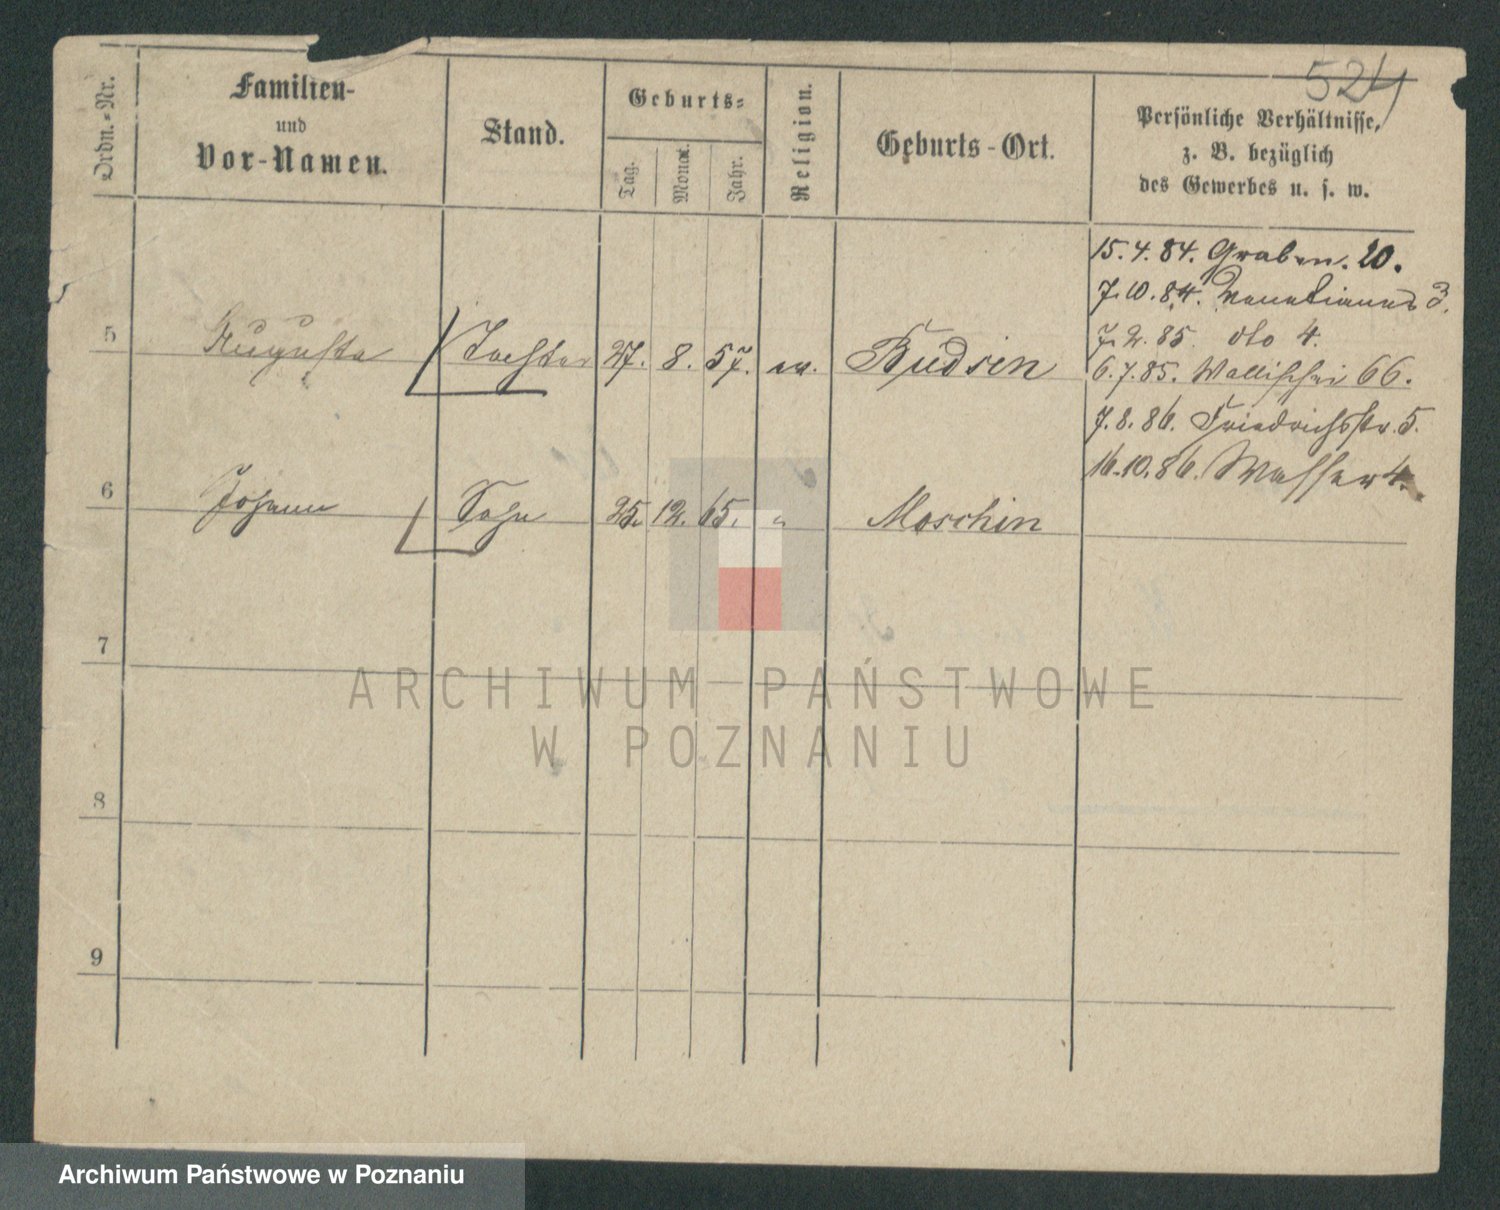 524
Ordn.-Nr.
Familien-
und
Vor-Namen.
Stand.
Geburts-
Tag.
Monat.
Jahr.
Religion.
Geburts-Ort.
Persönliche Verhältnisse,
z. B. bezüglich
des Gewerbes u. s. w.
15.4.84. Graben. 20.
7.10.84. 3.
7.2.85. dto 4.
6.7.85. Wallischei 66.
7.8.86. Friedrichsstr. 5.
16.10.86. Wasser 4.
5 Augusta Tochter 27. 8. 57. ev. Budsin
6 Johann Sohn 25. 12. 65. " Moschin
7
8
9
ARCHIWUM PAŃSTWOWE
W POZNANIU
Archiwum Państwowe w Poznaniu